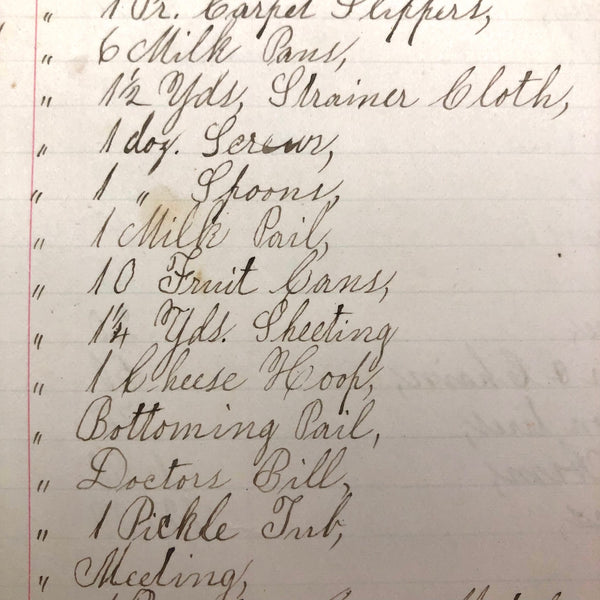 " 1 Pr. Carpet Slippers,
" 6 Milk Pans,
" 1 1/2 Yds, Strainer Cloth,
" 1 doz. Screws,
" 1 " Spoons,
" 1 Milk Pail,
" 10 Fruit Cans,
" 1 1/4 Yds. Sheeting
" 1 Cheese Hoop,
" Bottoming Pail,
" Doctors Bill,
" 1 Pickle Tub,
" Meeting,